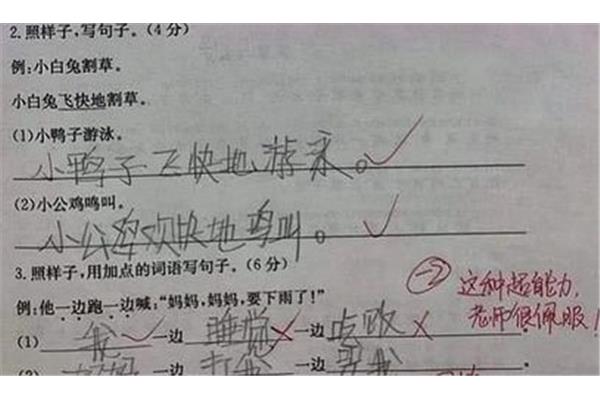 2.照样子,写句子。(4分)
例:小白兔割草。
小白兔飞快地割草。
(1)小鸭子游泳。
小鸭子飞快地游泳。
(2)小公鸡鸣叫。
小公鸡欢快地鸣叫。
3.照样子,用加点的词语写句子。(6分)
例:他一边跑一边喊:"妈妈,妈妈,要下雨了!"
(1) 我 一边 睡觉 一边
一边 打我 一边
-2 这种超能力,
老师很佩服!